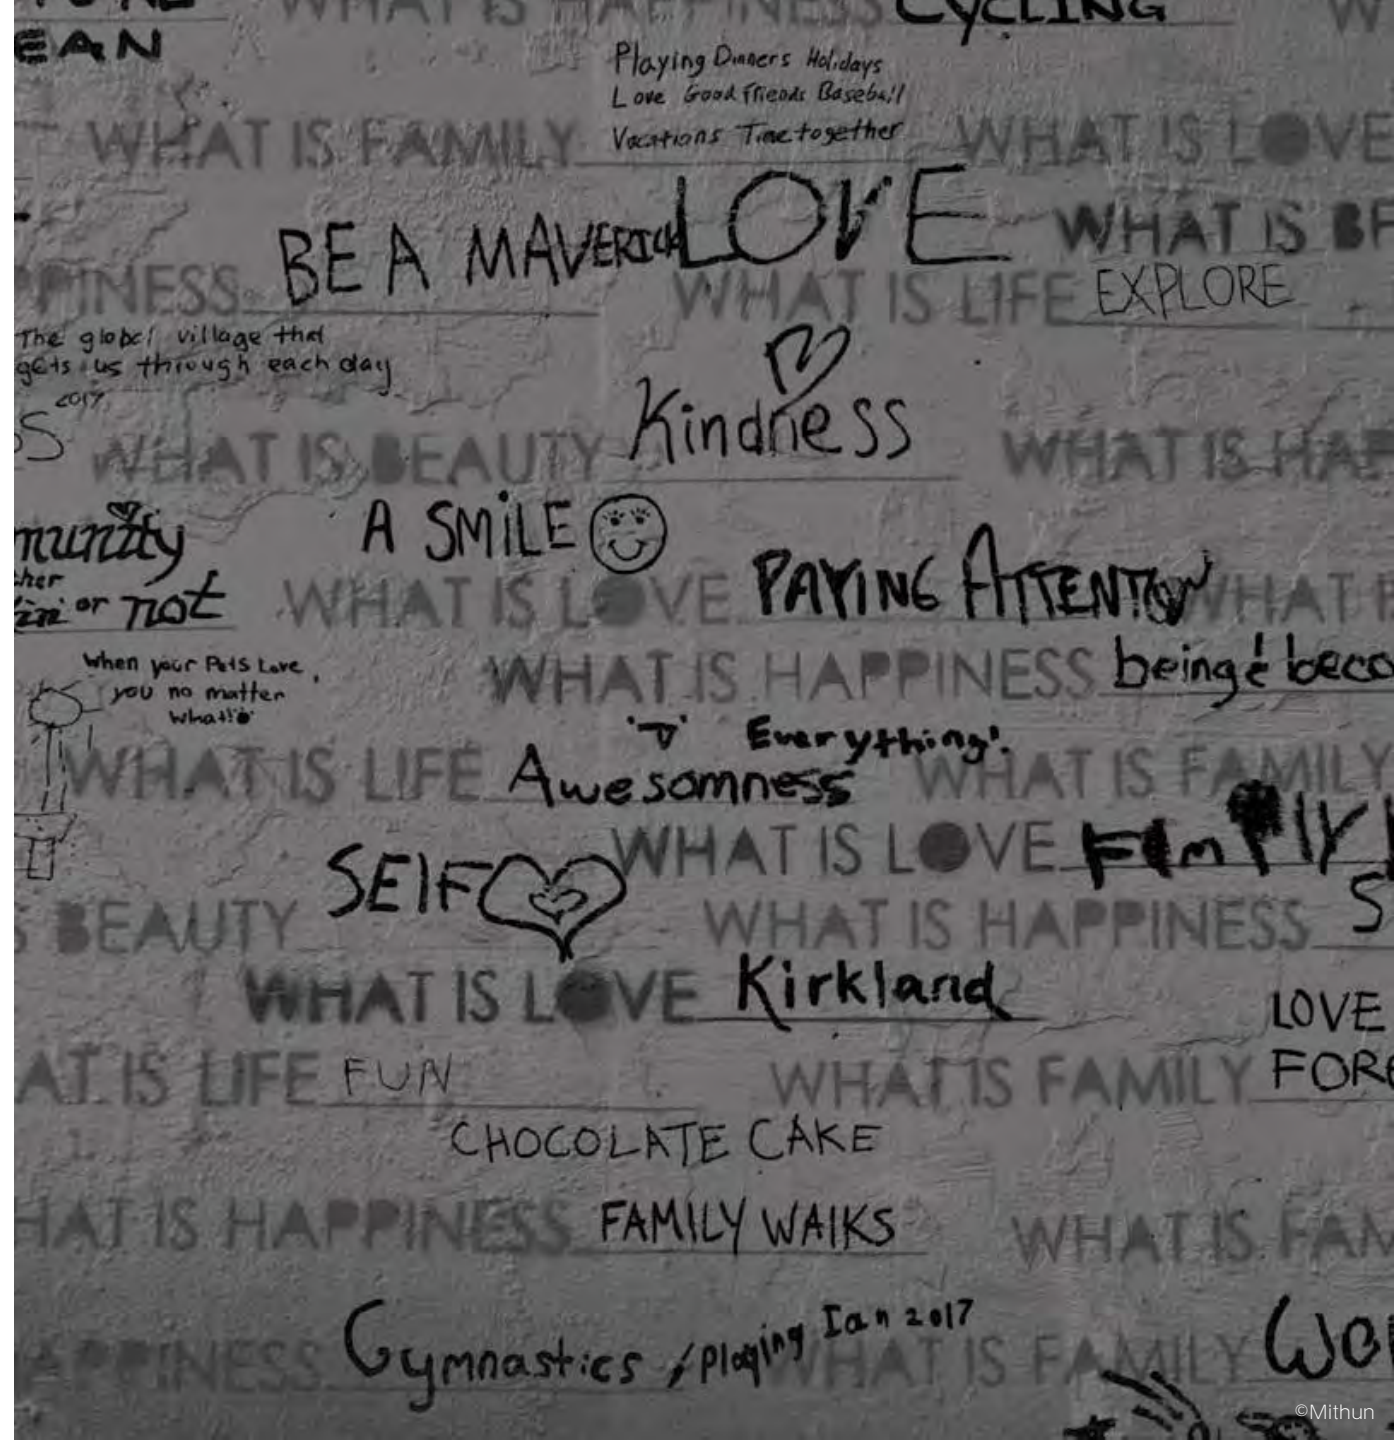 WHAT IS HAPPINESS CYCLING
EAN
Playing Dinners Holidays
Love Good Friends Baseball
Vacations Time together
WHAT IS FAMILY
WHAT IS LOVE
BE A MAVERICK
LOVE
WHAT IS BE
PPINESS
WHAT IS LIFE EXPLORE
The global village that
gets us through each day
2017
WHAT IS BEAUTY Kindness
WHAT IS HAP
A SMiLE
munity
her
or not
WHAT IS LOVE PAYING ATTENTION
WHAT
when your Pets Love
you no matter
what!
WHAT IS HAPPINESS being & beco
Everything!
WHAT IS LIFE Awesomness
WHAT IS FAMILY
WHAT IS LOVE
SElF
BEAUTY
WHAT IS HAPPINESS S
WHAT IS LOVE Kirkland
LOVE
AT IS LIFE FUN
WHAT IS FAMILY FORE
CHOCOLATE CAKE
HAT IS HAPPINESS FAMILY WAlKS
WHAT IS FAM
APPINESS Gymnastics / playing Ian 2017
WHAT IS FAMILY Wo
©Mithun